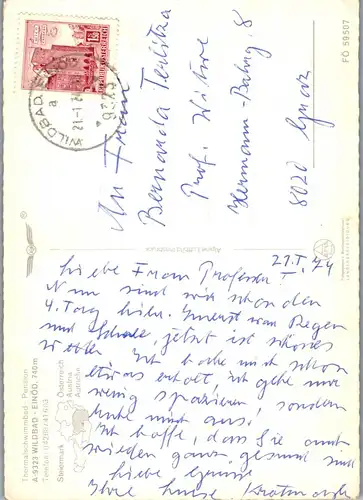 An Frau
Bernarda
Prof. Witwe
Hermann-Bahrg. 8
8020 Graz
WILDBAD
a
21.-1.
9323
REPUBLIK ÖSTERREICH
FO 59507
Thermalschwimmbad - Pension
A-9323 WILDBAD - EINÖD, 740m
Telefon
Steiermark
Österreich
Austria
Autriche
21. I. 74
Liebe Frau Professor!
Nun sind wir schon den
4. Tag hier. Zuerst war Regen
und Schnee, jetzt ist schönes
Wetter. Ich habe mich schon
etwas erholt, ich gehe nur
wenig spazieren, sondern
ruhe mich aus.
Ich hoffe, dass Sie auch
wieden ganz gesund sind
Liebe Grüsse
Ihre Luise